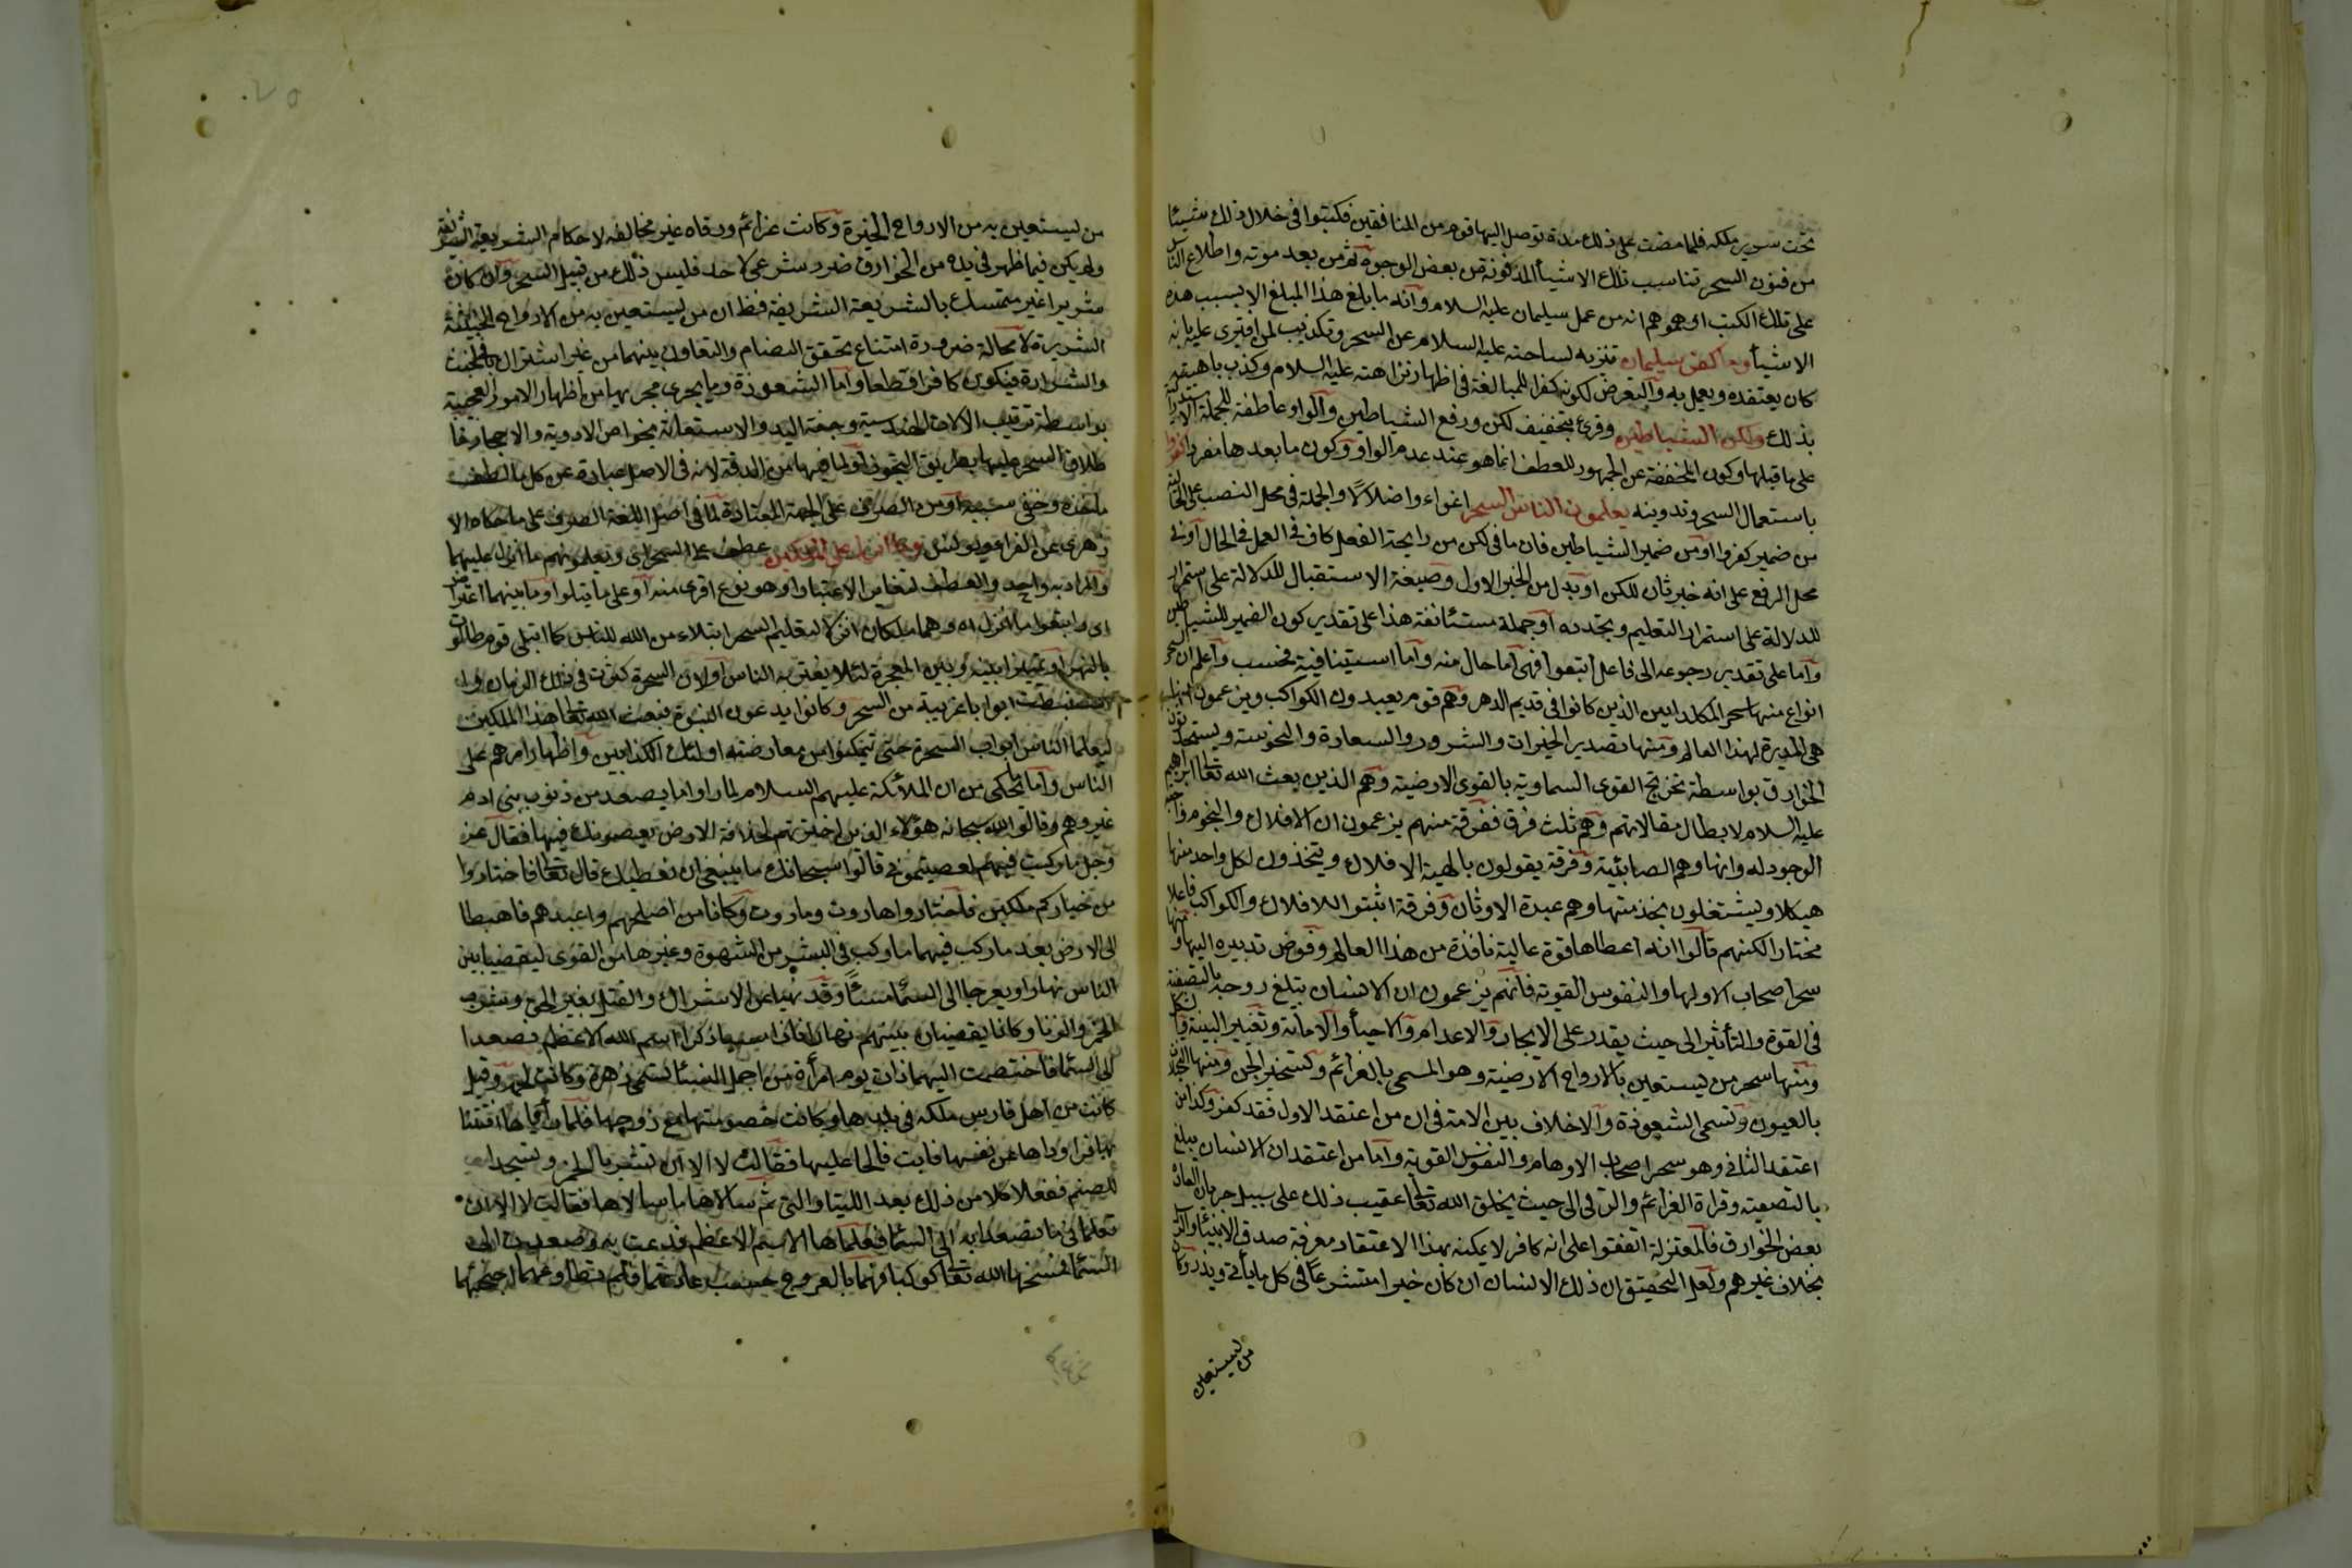 تحت سرير ملكه فلما مضت على ذلك مدة توصل اليها قوم من المنافقين فكتبوا في خلال ذلك شيئا
من فنون السحر تناسب تلك الاشياء المدفونة من بعض الوجوه ثم من بعد موته واطلاع الناس
على تلك الكتب اوهموهم انه من عمل سليمان عليه السلام وانه ما بلغ هذا المبلغ الا بسبب هذه
الاشياء وما كفر سليمان تنزيه لساحته عليه السلام عن السحر وتكذيب لمن افترى عليه بانه
كان يعتقده ويعمل به والتعرض لكونه كفرا للمبالغة في اظهار نزاهته عليه السلام وكذب باهتيه
بذلك ولكن الشياطين وقرئ بتخفيف لكن ورفع الشياطين والواو عاطفة للجملة الاستدراكية
على ما قبلها وكون المخففة عن الجمهور للعطف انما هو عند عدم الواو وكون ما بعدها مفردا كفروا
باستعمال السحر وتدوينه يعلمون الناس السحر اغواء واضلالا والجملة في محل النصب على الحالية
من ضمير كفروا او من ضمير الشياطين فان ما في لكن من رايحة الفعل كاف في العمل في الحال او في
محل الرفع على انه خبر ثان للكن او بدل من الخبر الاول وصيغة الاستقبال للدلالة على استمرار
للدلالة على استمرار التعليم وتجدده او جملة مستئانفة هذا على تقدير كون الضمير للشياطين
واما على تقدير رجوعه الى فاعل اتبعوا فهي اما حال منه واما استينافية فحسب واعلم ان السحر
انواع منها سحر الكلدانيين الذين كانوا في قديم الدهر وهم قوم يعبدون الكواكب ويزعمون انها
هي المدبرة لهذا العالم ومنها تصدير الخيرات والشرور والسعادة والنحوسة ويستحدثون
الخوارق بواسطة تمزيج القوى السماوية بالقوى الارضية وهم الذين بعث الله تعالى ابراهيم
عليه السلام لابطال مقالاتهم وهم ثلث فرق ففرقة منهم يزعمون ان الافلاك والنجوم واجبة
الوجود له وانها وهم الصابئية وفرقة يقولون بالهية الافلاك ويتخذون لكل واحد منها
هيكلا ويشتغلون بخدمتها وهم عبدة الاوثان وفرقة اثبتوا للافلاك والكواكب فاعلا
مختارا لكنهم قالوا انه اعطاها قوة عالية نافذة من هذا العالم وفوض تدبيره اليها ومنها
سحر اصحاب الاولها والنفوس القوية فانهم يزعمون ان الانسان يبلغ روحه بالتصفية
في القوة والتأثير الى حيث يقدر على الايجاد والاعدام والاحياء والاماتة وتغيير البنية والشكل
ومنها سحر من يستعين بالارواح الارضية وهو المسمى بالعزائم وتسخير الجن ومنها التخييلات
بالعيون وتسمى الشعوذة والاخلاف بين الامة في ان من اعتقد الاول فقد كفر وكذا من
اعتقد الثاني وهو سحر اصحاب الاوهام والنفوس القوية واما من اعتقد ان الانسان يبلغ
بالتصفية وقراة العزائم والرقى الى حيث يخلق الله تعالى عقيب ذلك على سبيل جريان العادة
بعض الخوارق فالمعتزلة اتفقوا على انه كافر لا يمكنه بهذا الاعتقاد معرفة صدق الانبياء والرسل
بخلاف غيرهم ولعل التحقيق ان ذلك الانسان ان كان خيرا متشرعا في كل ما يأتي ويذر وكان
من يستعين
من يستعين به من الارواح الخيرة وكانت عزائم ورقاه غير مخالفه لاحكام الشريعة الشريفة
ولم يكن فيما ظهر في يده من الخوارق ضرر شرعي لاحد فليس ذلك من قبيل السحر وان كان
شريرا غير متمسك بالشريعة الشريفة فظ ان من يستعين به من الارواح الخبيثة
الشريرة لا محالة ضرورة امتناع تحقق التضام والتعاون بينهما من غير اشتراك في الخبث
والشرارة فيكون كافرا قطعا واما الشعوذة وما يجري مجريها من اظهار الامور العجيبة
بواسطة ترتيب الالات الهندسية وخفة اليد والاستعانة بخواص الادوية والاحجار فا
طلاق السحر عليها بطريق التجوز او لما فيها من الدقة لانه في الاصل عبارة عن كل ما لطف
مأخذه وخفي سببه او من الصرف على الجهة المعتادة لما في اصل اللغة الصرف على ما حكاه الا
زهري عن الفراء ويونس وما انزل على الملكين عطف على السحر اى ويعلمونهم ما انزل عليهما
والمراد به واحد والعطف لتغاير الاعتبار او هو نوع اقوى منه او على ما يتلوا وما بينهما اعتراض
اى واتبعوا ما انزل اه وهما ملكان انزلا لتعليم السحر ابتلاء من الله للناس كما ابتلى قوم طالوت
بالنهر او تمييزا بينه وبين المعجزة لئلا يغتر به الناس او لان السحرة كثرت في ذلك الزمان وا
ستنبطت ابوابا غريبة من السحر وكانوا يدعون النبوة فبعث الله تعالى هذا الملكين
ليعلما الناس ابواب السحرة حتى يتمكنوا من معارضته اولئك الكذابين واظهار امرهم على
الناس واما ما يحكى من ان الملائكة عليهم السلام لما راوا ما يصعد من ذنوب بني ادم
عيروهم وقالوا لله سبحانه هؤلاء الذين اخترتهم لخلافة الارض يعصونك فيها فقال عز
وجل لو ركبت فيكم ما ركبت فيهم لعصيتموني قالوا سبحانك ما ينبغي ان نعصيك قال تعالى فاختاروا
من خياركم ملكين فاختاروا هاروت وماروت وكانا من اصلحهم واعبدهم فاهبطا
الى الارض بعد ما ركب فيهما ما ركب في البشر من الشهوة وغيرها من القوى ليقضيا بين
الناس نهارا ويعرجا الى السماء مساءً وقد نهيا عن الاشراك والقتل بغير الحق وشرب
الخمر والزنا وكانا يقضيان بينهم نهارا فاذا امسيا ذكرا اسم الله الاعظم فصعدا
الى السماء فاختصمت اليهما ذات يوم امرأة من اجمل النساء تسمى زهرة وكانت لخم وقيل
كانت من اهل فارس ملكه في بلدها وكانت خصومتها مع زوجها فلما راياها افتتنا
بها فراوداها عن نفسها فابت فالحا عليها فقالت لا الا ان تشربا الخمر وتسجدا
للصنم ففعلا كلا من ذلك بعد اللتيا والتي ثم سالاها ما سالاها فقالت لا الا ان
تعلماني ما تصعدان به الى السماء فعلماها الاسم الاعظم فدعت به وصعدت الى
السماء فمسخها الله تعالى كوكبا فهما بالعروج حسب عادتهما فلم تطاوعهما اجنحتهما